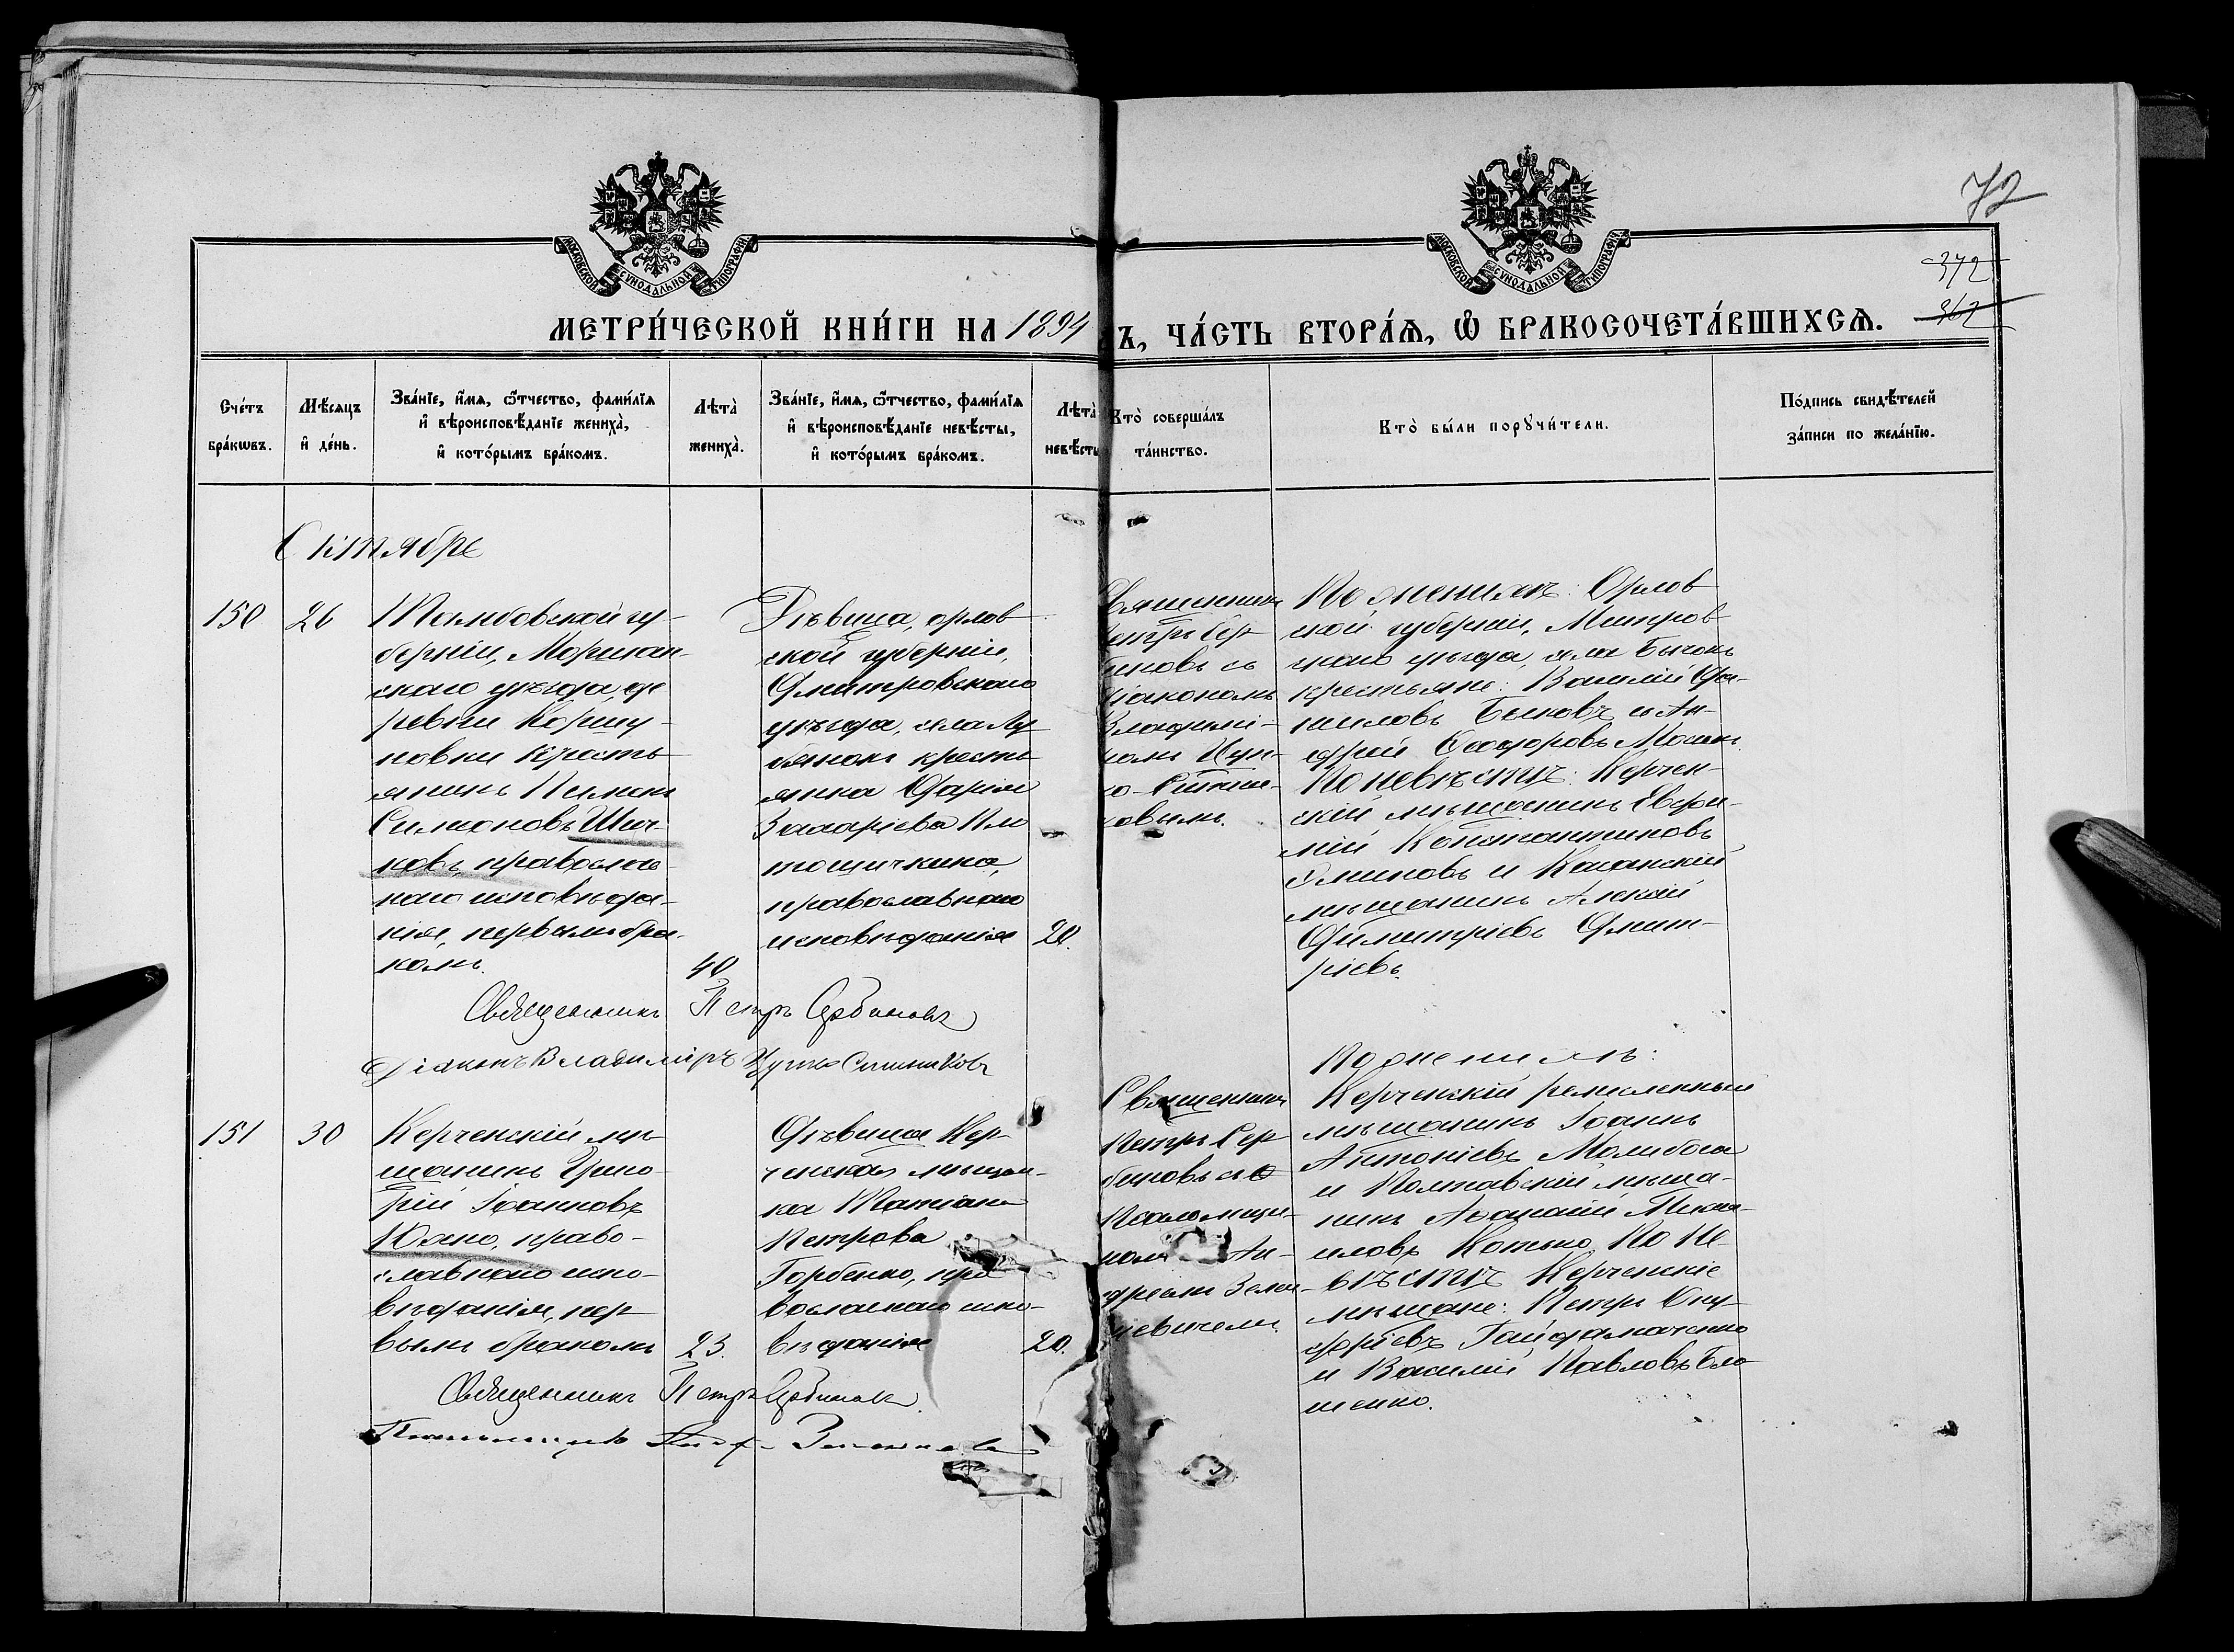 72
372
362
МОСКОВСКОЙ СѴНОДАЛЬНОЙ ТИПОГРАФІИ
МОСКОВСКОЙ СѴНОДАЛЬНОЙ ТИПОГРАФІИ
МЕТРИ́ЧЕСКОЙ КНИ́ГИ НА 1894
Ъ, ЧА́СТЬ ВТОРА́Ѧ, Ѽ БРАКОСОЧЕТА́ВШИХСѦ.
Сче́тъ бра́кѡвъ.
Мѣ́сяцъ и҆ де́нь.
Зва́нїе, и҆́мя, ѻ҆́тчество, фами́лїя и҆ вѣроисповѣ́данїе жениха̀, и҆ кото́рымъ бра́комъ.
Лѣта̀ жениха̀.
Зва́нїе, и҆́мя, ѻ҆́тчество, фами́лїя и҆ вѣроисповѣ́данїе невѣ́сты, и҆ кото́рымъ бра́комъ.
Лѣта̀ невѣ́сты
Кто̀ соверша́лъ та́инство.
Кто̀ бы́ли порꙋчи́тели.
По́дпись свидѣ́телей за́писи по жела́нїю.
Сентябре
150
26
Тамбовской гу-
берніи, Моршан-
скаго уѣзда, де
ревни Коршу-
новки кресть
янинъ Пименъ
Симеоновъ Шич-
ковъ, православ-
наго исповѣда-
нія, первымъ бра-
комъ.
40
Дѣвица, орлов
ской губерніи,
Дмитровскаго
уѣзда, села Лу
бянокъ кресть
янка Дарія
Захаріева Пло
тощичкина,
православнаго
исповѣданія
20.
Священник
Петръ Сер
биновъ съ
діакономъ
Владимі-
ромъ Цун-
ковымъ.
По женихѣ: Орлов
ской губерніи, Митров
скаго уѣзда, села Бычокъ
крестьяне: Василій Да-
ниловъ Быковъ и Ан-
дрей Ѳеодоровъ Мосинъ.
По невѣстѣ: Керчен-
скій мѣщанинъ Евфи-
мій Константиновъ
Эминовъ и Казанскій
мѣщанинъ Алексій
Димитріевъ Дмит-
ріевъ.
Священникъ Петръ Сербиновъ
Діаконъ Владиміръ
151
30
Керченскій мѣ
щанинъ Григо
рій Іоанновъ
Юхно, право-
славнаго испо-
вѣданія, пер
вымъ бракомъ
23.
Дѣвица Кер-
ченская мѣщан-
ка Татіана
Петрова
Горбенко, пра
вославнаго испо-
вѣданія
20.
Священник
Петръ Сер
биновъ съ
Псаломщи-
комъ Ан-
дреемъ
По женихѣ:
Керченскій ремесленный
мѣщанинъ Іоаннъ
Антоніевъ Молибога
и Полтавскій мѣща-
нинъ Аѳанасій Михаи-
иловъ Котько, По не-
вѣстѣ Керченскіе
мѣщане: Петръ Ону-
фріевъ Гайдамаченко
и Василій Павловъ Бла
шенко.
Священникъ Петръ Сербиновъ